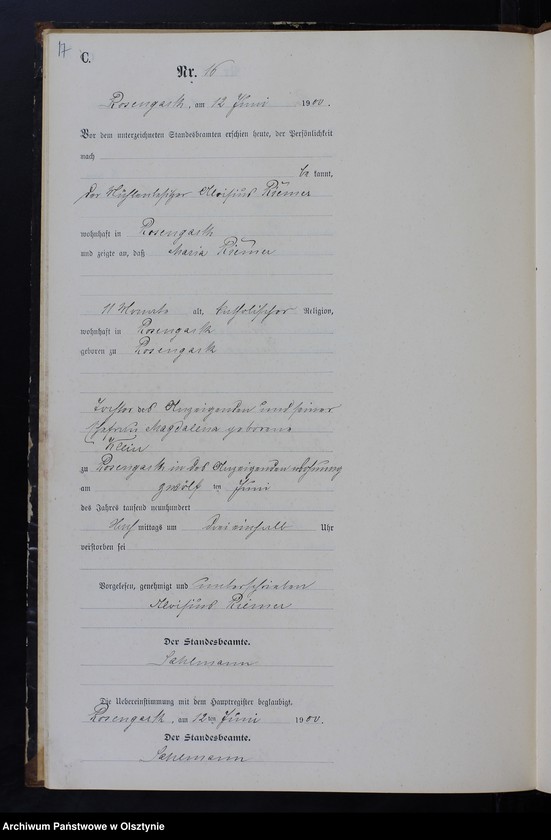 17
C.
Nr. 16
Rosengarth, am 12 Juni 1900.
Vor dem unterzeichneten Standesbeamten erschien heute, der Persönlichkeit
nach
be kannt,
der Mühlenbesitzer Aloisius Riemer
wohnhaft in Rosengarth
und zeigte an, daß Maria Riemer
11 Monate alt, katholischer Religion,
wohnhaft in Rosengarth
geboren zu Rosengarth
Tochter des Anzeigenden und seiner
Ehefrau Magdalena geborene
Klein
zu Rosengarth in des Anzeigenden Wohnung
am zwölf ten Juni
des Jahres tausend neunhundert
Nach mittags um drei einhalb Uhr
verstorben sei
Vorgelesen, genehmigt und unterschrieben
Aloisius Riemer
Der Standesbeamte.
Sahlmann
Die Uebereinstimmung mit dem Hauptregister beglaubigt.
Rosengarth, am 12ten Juni 1900.
Der Standesbeamte.
Sahlmann
Archiwum Państwowe w Olsztynie